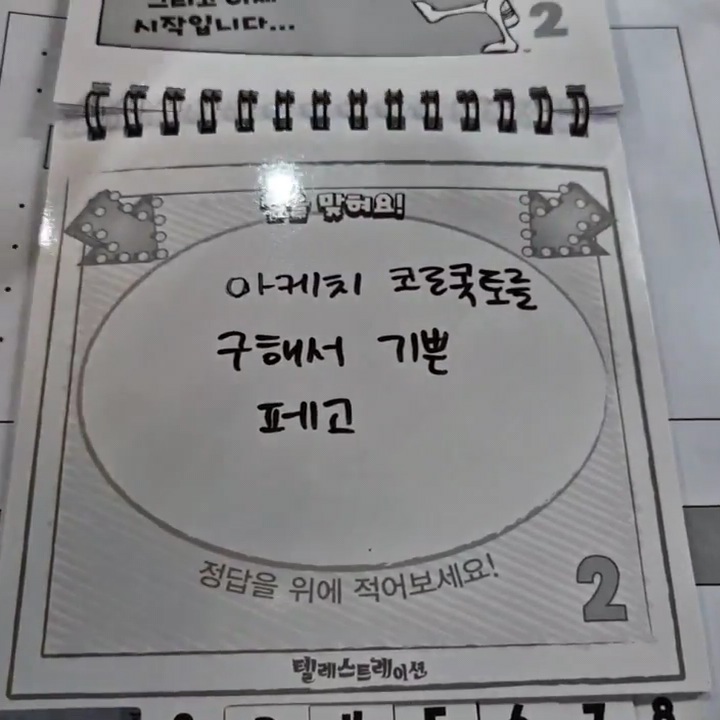 시작입니다...
2
맞혀요!
아케치 코르쿳토를
구해서 기쁜
페고
정답을 위에 적어보세요!
2
텔레스트레이션
6 7 8